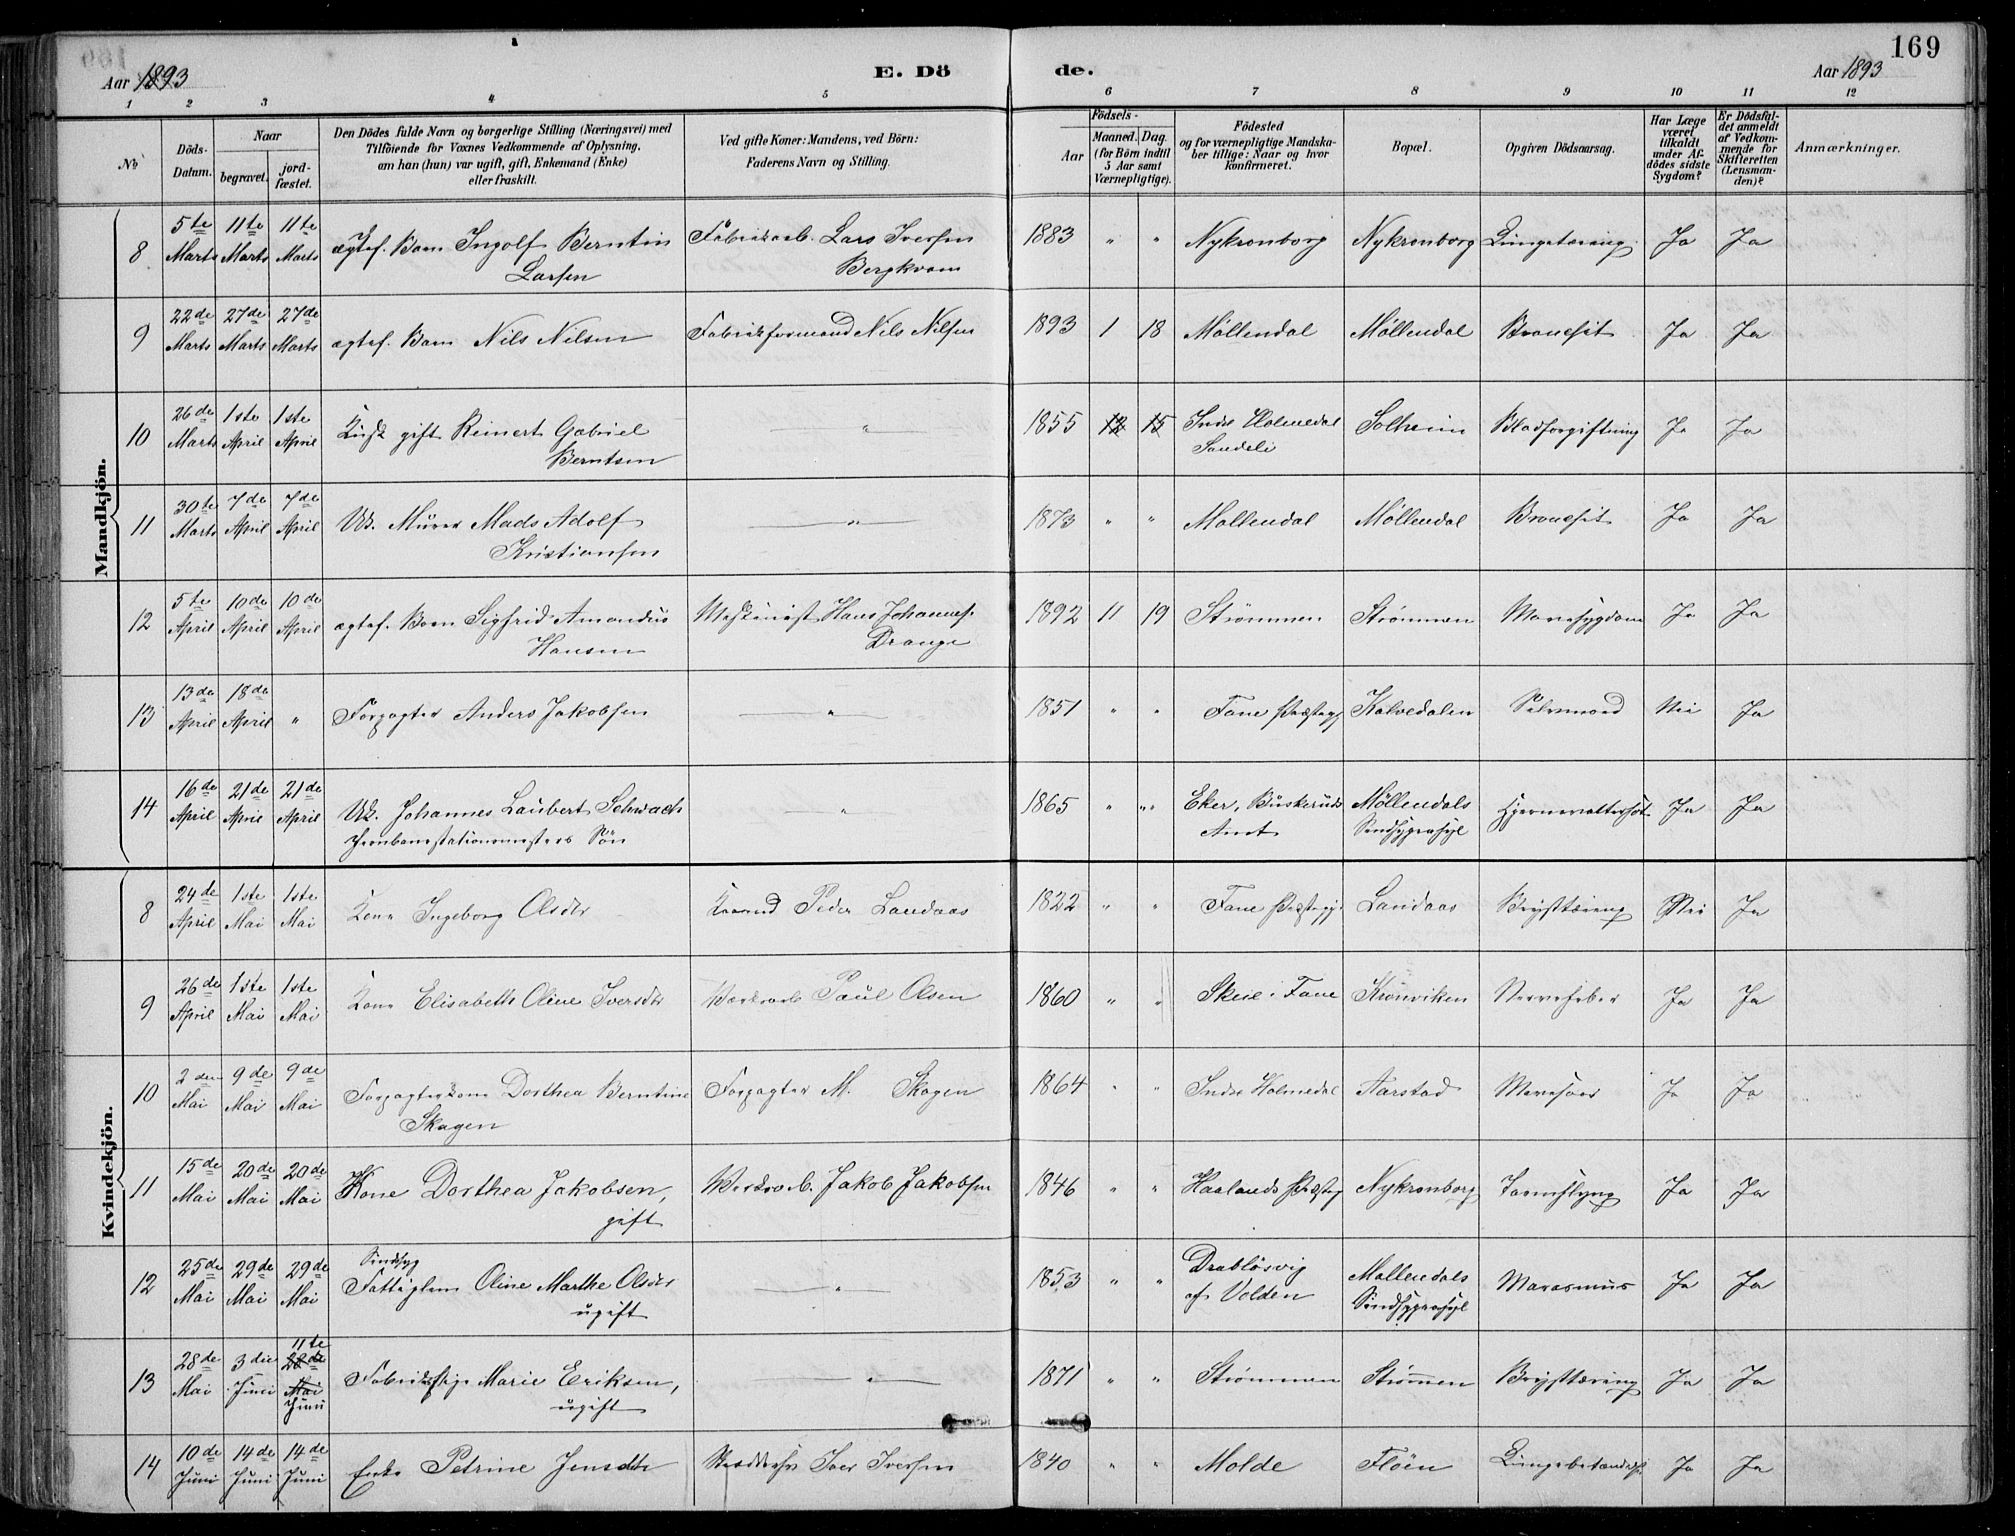 169
Aar 1893 E. Dö de. Aar 1893
1 2 3 4 5 6 7 8 9 10 11 12
No
Döds-Datum.
Naar
begravet.
jordfæstet.
Den Dödes fulde Navn og borgerlige Stilling (Næringsvei) med
Tilföiende for Voxnes Vedkommende af Oplysning,
om han (hun) var ugift, gift, Enkemand (Enke)
eller fraskilt.
Ved gifte Koner: Mandens, ved Börn:
Faderens Navn og Stilling.
Födsels-
Aar
Maaned. Dag.
(for Börn indtil
5 Aar samt
Værnepligtige).
Födested
og for værnepligtige Mandska-
ber tillige: Naar og hvor
konfirmeret.
Bopæl.
Opgiven Dödsaarsag.
Har Læge
været
tilkaldt
under Af-
dödes sidste
Sygdom?
Er Dödsfal-
det anmeldt
af Vedkom-
mende for
Skifteretten
(Lensman-
den)?
Anmærkninger.
Mandkjön.
8 5te Marts 11te Marts 11te Marts ægtef. Barn Ingolf Berntin Larsen Fabrikarb. Lars Iversen Bergkvam 1883 " " Nykronborg Nykronborg Lungetæring Ja Ja
9 22de Marts 27de Marts 27de Marts ægtef. Barn Nils Nilsen Fabrikformand Nils Nilsen 1893 1 18 Möllendal Möllendal Broncit Ja Ja
10 26de Marts 1ste April 1ste April Kusk gift Reinert Gabriel Berntsen " 1855 12 15 Indre Holmedal Sandeli Solheim Blodforgiftning Ja Ja
11 30te Marts 7de April 7de April Uk. Murer Mads Adolf Kristiansen " 1873 " " Möllendal Möllendal Broncit Ja Ja
12 5te April 10de April 10de April ægtef. Barn Sigfrid Amandus Hansen Maskinist Hans Johannes. Drange 1892 11 19 Strömmen Strömmen Mavesygdom Ja Ja
13 13de April 18de April " Forpagter Anders Jakobsen " 1851 " " Fane Præstegj. Kalvedalen Selvmord Nei Ja
14 16de April 21de April 21de April Uk. Johannes Laubert Schwach Jernbanestationsmesters Sön " 1865 " " Eker, Buskeruds Amt Möllendals Sindsygeasyl Ja Ja
Kvindekjön.
8 24de April 1ste Mai 1ste Mai Kone Ingeborg Olsdtr Peder Landaas 1822 " " Fane Præstegj. Landaas Brysttæring Nei Ja
9 26de April 1ste Mai 1ste Mai Kone Elisabeth Oline Iversdtr Værksarb Paul Olsen 1860 " " Skeie i Fane Kronviken Nervefeber Ja Ja
10 2den Mai 9de Mai 9de Mai Forpagterkone Dorthea Berntine Skagen Forpagter M. Skagen 1864 " " Indre Holmedal Aarstad Mavesaar Ja Ja
11 15de Mai 20de Mai 20de Mai Kone Dorthea Jakobsen, gift Værksarb. Jakob Jakobsen 1846 " " Haalands Præstegj Nykronborg Tarmslyng Ja Ja
12 25de Mai 29de Mai 29de Mai Sindsyg Fattiglem Oline Marthe Olsdtr ugift " 1853 " " Drablösvig af Volden Möllendals Sindsygeasyl Marasmus Ja Ja
13 28de Mai 3die Juni 11te 28de Mai Juni Fabrikspige Marie Eriksen, ugift " 1871 " " Strömmen Strömmen Brysttæring Ja Ja
14 10de Juni 14de Juni 14de Juni Enke Petrine Jensdtr Iver Iversen 1840 " " Molde Flöen Lungebetændelse Ja Ja